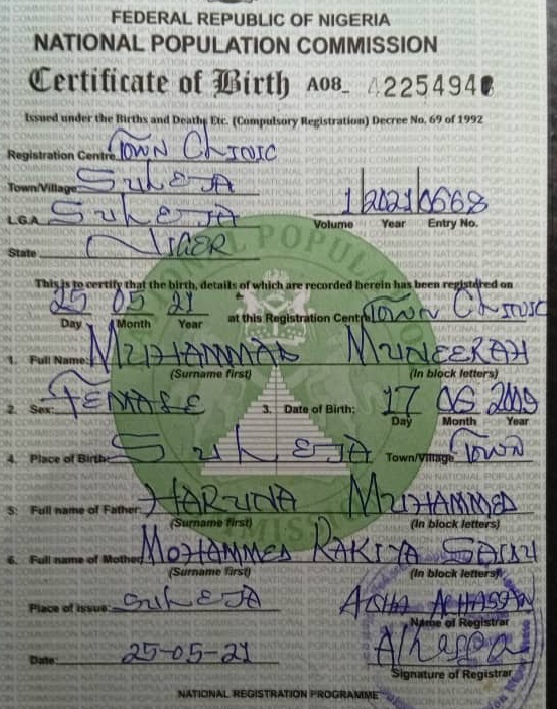 FEDERAL REPUBLIC OF NIGERIA
NATIONAL POPULATION COMMISSION
Certificate of Birth A08_ 4225494
Issued under the Births and Deaths Etc. (Compulsory Registration) Decree No. 69 of 1992
Registration Centre TOWN CLINIC
Town/Village SULEJA
L.G.A. SULEJA 1 2021 0568
Volume Year Entry No.
State NIGER
This is to certify that the birth, details of which are recorded herein has been registered on
25 05 21 at this Registration Centre TOWN CLINIC
Day Month Year
1. Full Name: MUHAMMAD MUNEERAH
(Surname first) (In block letters)
2. Sex: FEMALE 3. Date of Birth: 17 05 2009
Day Month Year
4. Place of Birth SULEJA Town/Village TOWN
5: Full name of Father HARUNA MUHAMMED
(Surname first) (In block letters)
6. Full name of Mother MOHAMMED RAKIYA
(Surname first) (In block letters)
Place of Issue: SULEJA
Name of Registrar
Date: 25-05-21
Signature of Registrar
NATIONAL REGISTRATION PROGRAMME